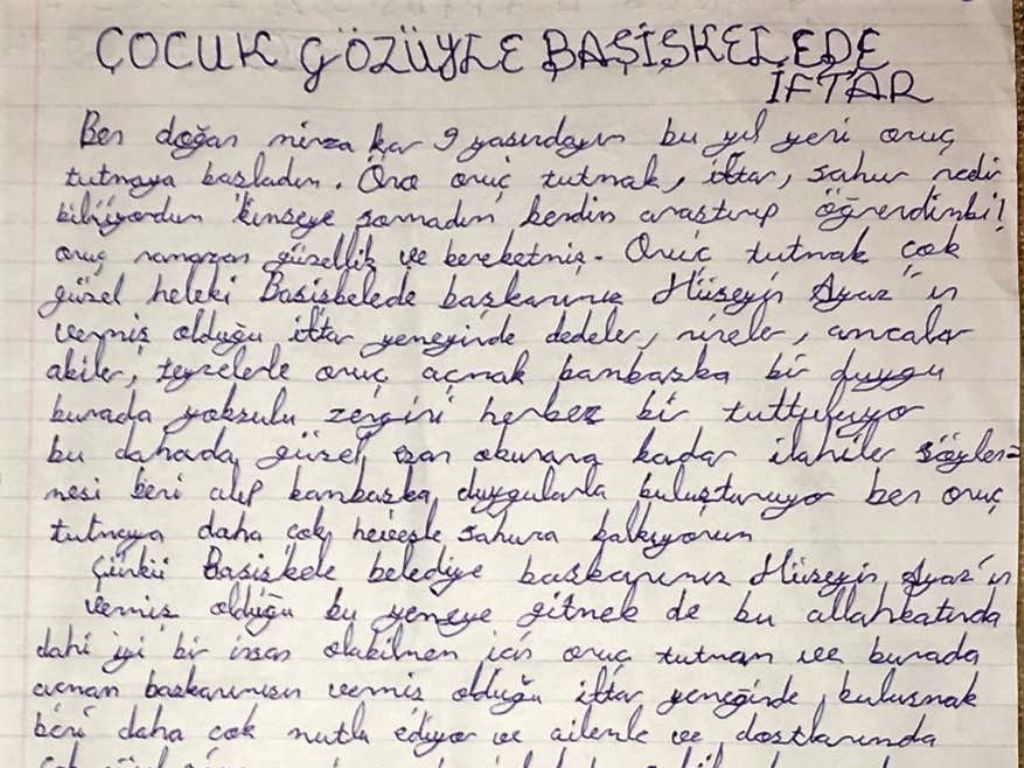 ÇOCUK GÖZÜYLE BAŞİSKELEDE
İFTAR
Ben doğan mirza kar 9 yaşındayım bu yıl yeni oruç
tutmaya başladım. Önce oruç tutmak, iftar, sahur nedir
bilmiyordum kimseye sormadım kendim araştırıp öğrendimki!
oruç ramazan güzellik ve bereketmiş. Oruç tutmak çok
güzel heleki Basiskelede başkanımız Hüseyin Ayaz"ın
vermiş olduğu iftar yemeğinde dedeler, nineler, amcalar
abiler, teyzelerle oruç açmak bambaşka bir duygu
burada yoksulu zengini herkez bir tuttuluyor
bu dahada güzel ezan okunana kadar ilahiler söylen=
mesi beni alıp bambaşka duygularla buluşturuyor ben oruç
tutmaya daha çok hevesle sahura kalkıyorum
Çünkü Basiskele belediye baskanımız Hüseyin Ayaz'ın
vermiş olduğu bu yemeye gitmek de bu allahkatında
dahi iyi bir insan olabilmem için oruç tutmam ve burada
açmam baskanımısın vermiş olduğu iftar yemeğinde bulusmak
beni daha çok mutlu ediyor ve ailemle ve dostlarımda